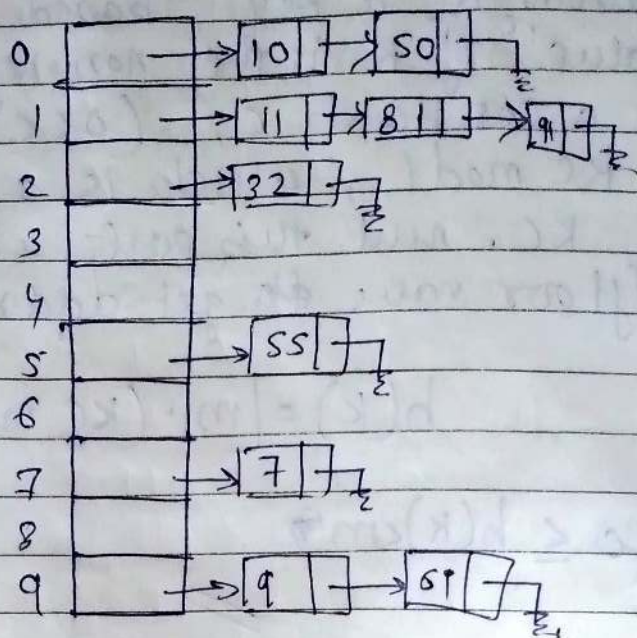 0 10 50
1 11 81 91
2 32
3
4
5 55
6
7 7
8
9 9
h(k) = m